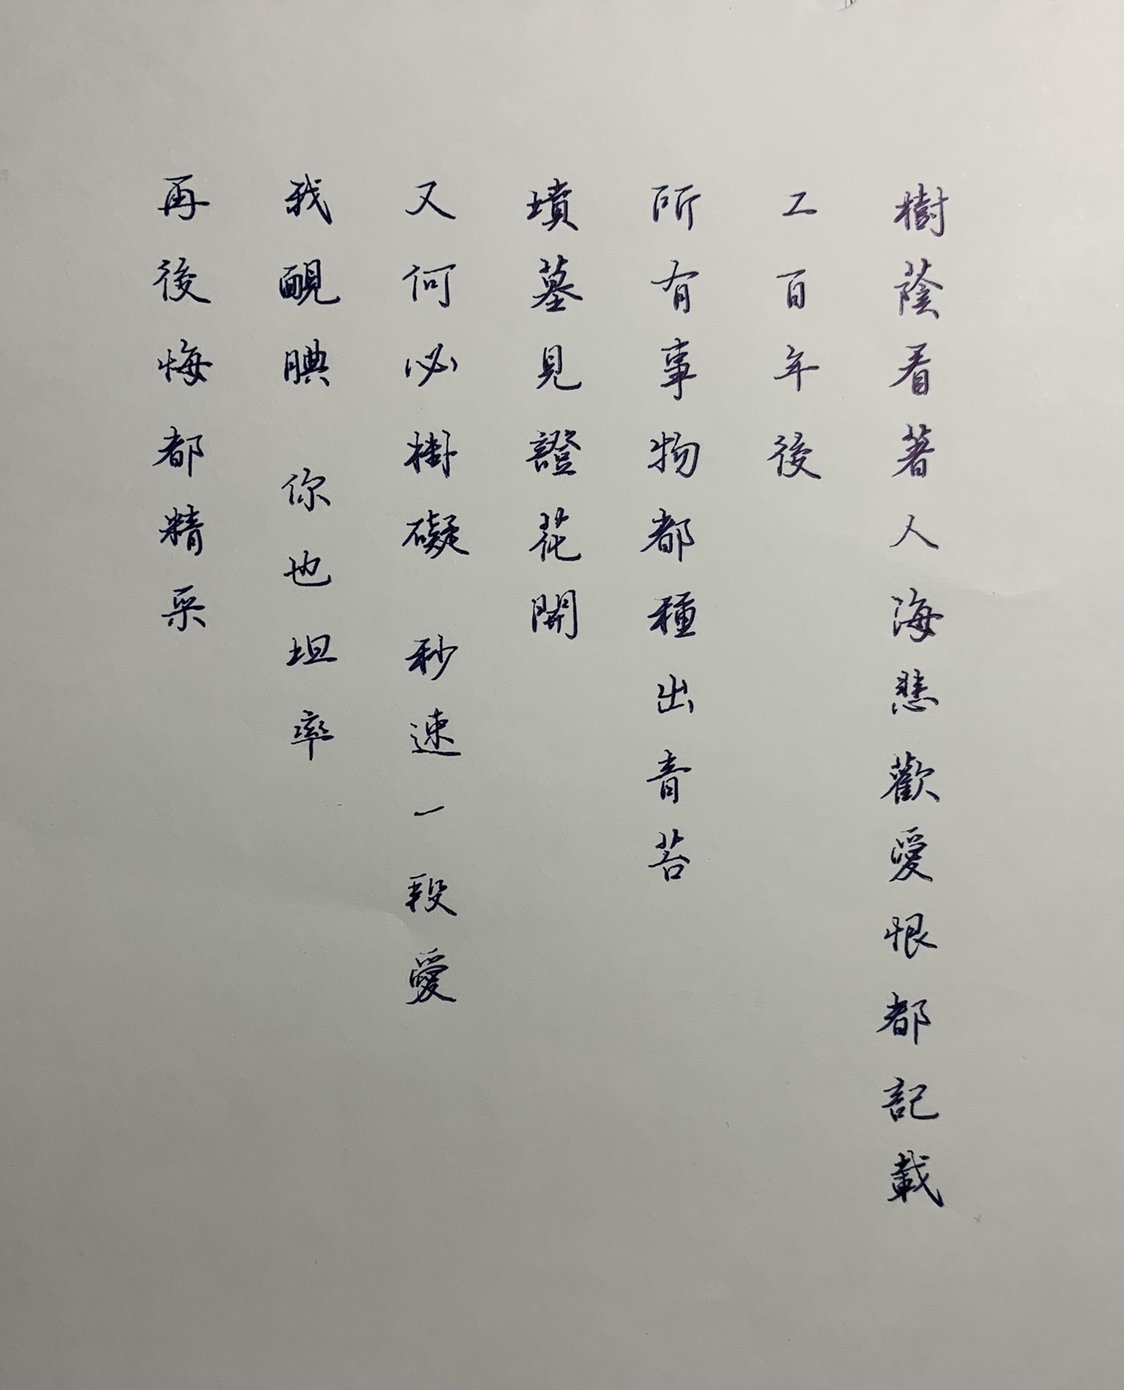 樹蔭看著人海悲歡愛恨都記載
二百年後
所有事物都種出青苔
墳墓見證花開
又何必樹礙 秒速一段愛
我靦腆 你也坦率
再後悔都精采